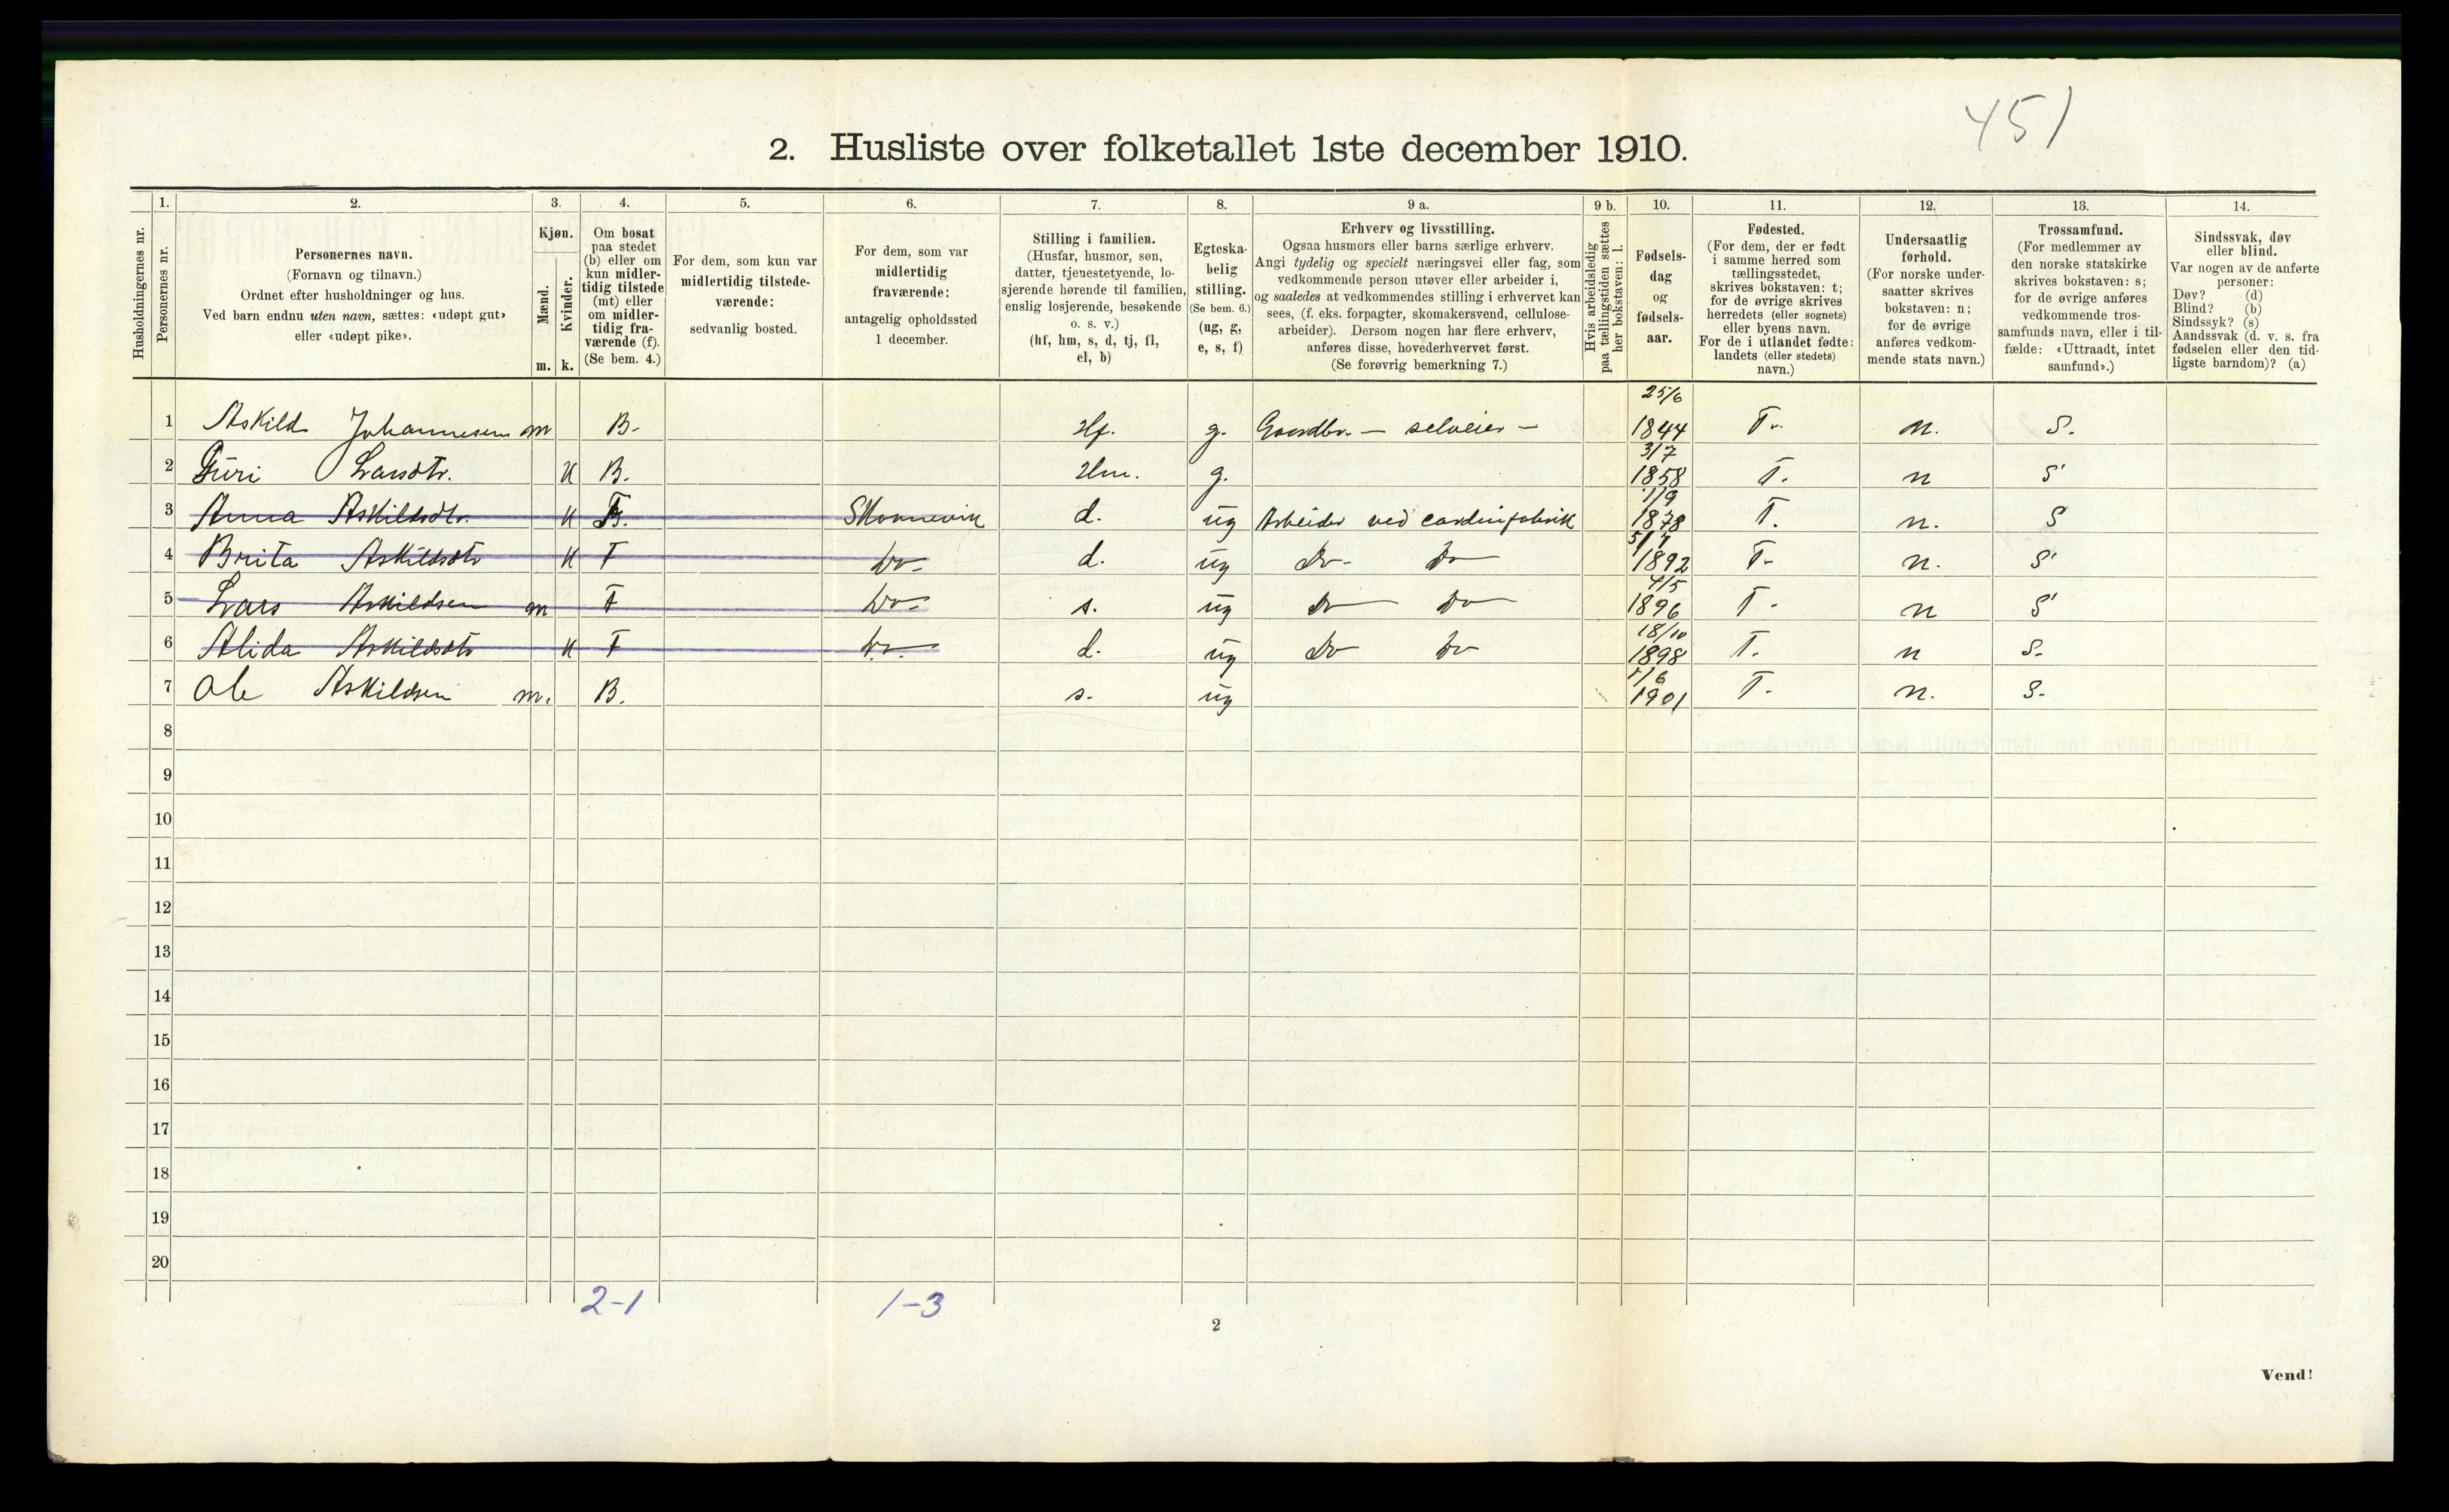 451
2. Husliste over folketallet 1ste december 1910.
Husholdningernes nr.
1. Personernes nr.
2. Personernes navn.
(Fornavn og tilnavn.)
Ordnet efter husholdninger og hus.
Ved barn endnu uten navn, sættes: «udøpt gut»
eller «udøpt pike».
3. Kjøn.
Mænd. m.
Kvinder. k.
4. Om bosat
paa stedet
(b) eller om
kun midler-
tidig tilstede
(mt) eller
om midler-
tidig fra-
værende (f).
(Se bem. 4.)
5. For dem, som kun var
midlertidig tilstede-
værende:
sedvanlig bosted.
6. For dem, som var
midlertidig
fraværende:
antagelig opholdssted
1 december.
7. Stilling i familien.
(Husfar, husmor, søn,
datter, tjenestetyende, lo-
sjerende hørende til familien,
enslig losjerende, besøkende
o. s. v.)
(hf, hm, s, d, tj, fl,
el, b)
8. Egteska-
belig
stilling.
(Se bem. 6.)
(ug, g,
e, s, f)
9 a. Erhverv og livsstilling.
Ogsaa husmors eller barns særlige erhverv.
Angi tydelig og specielt næringsvei eller fag, som
vedkommende person utøver eller arbeider i,
og saaledes at vedkommendes stilling i erhvervet kan
sees, (f. eks. forpagter, skomakersvend, cellulose-
arbeider). Dersom nogen har flere erhverv,
anføres disse, hovederhvervet først.
(Se forøvrig bemerkning 7.)
9 b. Hvis arbeidsledig
paa tællingstiden sættes
her bokstaven: l.
10. Fødsels-
dag
og
fødsels-
aar.
11. Fødested.
(For dem, der er født
i samme herred som
tællingsstedet,
skrives bokstaven: t;
for de øvrige skrives
herredets (eller sognets)
eller byens navn.
For de i utlandet fødte:
landets (eller stedets)
navn.)
12. Undersaatlig
forhold.
(For norske under-
saatter skrives
bokstaven: n;
for de øvrige
anføres vedkom-
mende stats navn.)
13. Trossamfund.
(For medlemmer av
den norske statskirke
skrives bokstaven: s;
for de øvrige anføres
vedkommende tros-
samfunds navn, eller i til-
fælde: «Uttraadt, intet
samfund».)
14. Sindssvak, døv
eller blind.
Var nogen av de anførte
personer:
Døv? (d)
Blind? (b)
Sindssyk? (s)
Aandssvak (d. v. s. fra
fødselen eller den tid-
ligste barndom)? (a)
1 Askild Johannesen m B. Hf. g. Gaardbr. - selveier - 25/6 1844 T. n. S.
2 Guri Larsdtr. K B. Hm. g. 3/7 1858 T. n S
3 Anna Askildsdtr. K F. Skonnevik d. ug Arbeider ved cardinfabrik 1/9 1878 T. n. S
4 Brita Askildsdtr K F Do- d. ug Do- Do 5/7 1892 T- n. S
5 Lars Askildsen m F Do- s. ug Do Do 4/5 1896 T. n S
6 Alida Askildsdtr K F Do- d. ug Do Do 18/10 1898 T. n S.
7 Ole Askildsen m. B. s. ug 1/6 1901 T. n. S.
8
9
10
11
12
13
14
15
16
17
18
19
20
2-1 1-3
2
Vend!